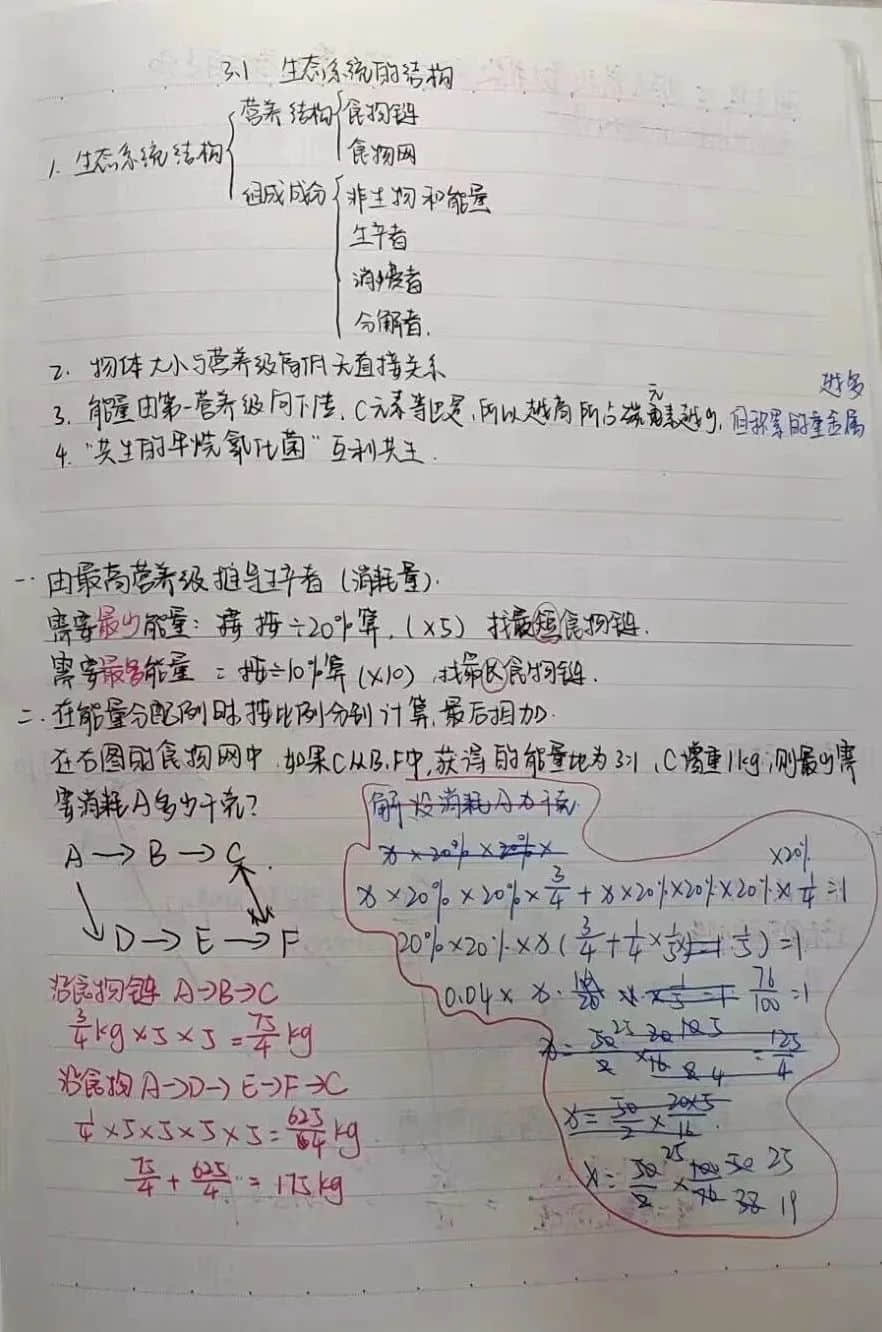 3.1 生态系统的结构
1. 生态系统结构
营养结构
食物链
食物网
组成成分
非生物和能量
生产者
消费者
分解者.
2. 物体大小与营养级高低无直接关系
3. 能量由第一营养级向下传, C元素等也是, 所以越高所占碳元素越少, 但积累的重金属越多
4. “共生的甲烷氧化菌” 互利共生.
一. 由最高营养级推导生产者 (消耗量).
需要最少能量: 按÷20%算, (×5) 找最短食物链.
需要最多能量 = 按÷10%算 (×10), 找最长食物链.
二. 在能量分配比例时按比例分别计算, 最后相加.
在右图的食物网中, 如果C从B、F中, 获得的能量比为3:1, C增重1kg, 则最少需
要消耗A多少千克?
A → B → C
D → E → F
沿食物链 A→B→C
3/4 kg × 5 × 5 = 75/4 kg
沿食物 A→D→E→F→C
1/4 × 5 × 5 × 5 × 5 = 625/4 kg
75/4 + 625/4 = 175kg
解 设消耗A为 千克
x × 20% × 20% ×
×20%
x × 20% × 20% × 3/4 + x × 20% × 20% × 20% × 1/4 = 1
20% × 20% × x (3/4 + 1/4 × 1/5 · 1/5) = 1
0.04 × x · 76/100 = 1
x = 50/2 × 20×5/16